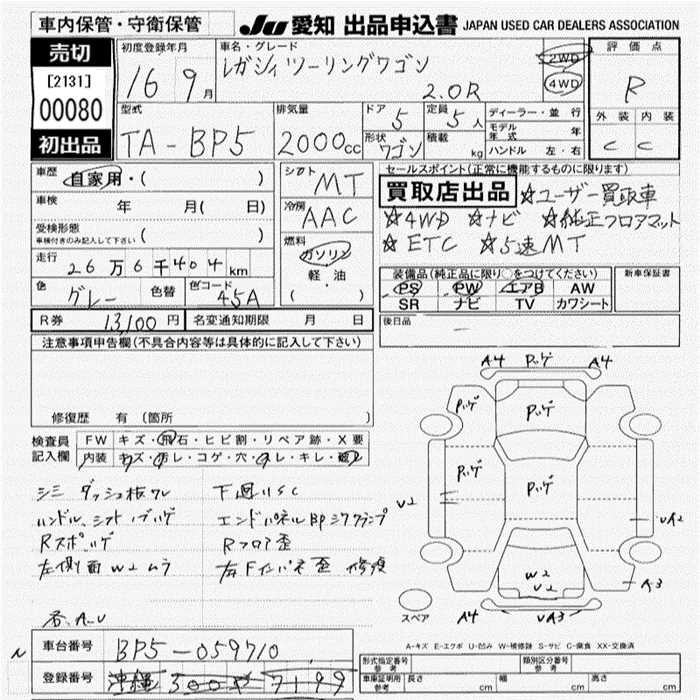 車内保管・守衛保管
JU 愛知 出品申込書 JAPAN USED CAR DEALERS ASSOCIATION
売切
[2131]
00080
初出品
初度登録年月
16 9月
車名・グレード
レガシィツーリングワゴン
2.0R
2WD
4WD
評価点
R
外装 内装
C C
型式
TA-BP5
排気量
2000cc
ドア 5
定員 5人
形状 ワゴン
積載 kg
ディーラー・並行
モデル年式 年
ハンドル 左・右
車歴 自家用・( )
車検 年 月( 日)
受検形態
車検付きのみ記入して下さい ( )
走行 26万6千404km
色 グレー 色替 色コード 45A
シフト MT
冷房 AAC
燃料 ガソリン
軽・油
( )
セールスポイント(正常に機能するものに限ります)
買取店出品 ☆ユーザー買取車
☆4WD ☆ナビ ☆純正フロアマット
☆ETC ☆5速MT
装備品(純正品に限り○をつけてください)
PS PW エアB AW
SR ナビ TV カワシート
新車保証書
R券 13,100円 名変通知期限 月 日
後日品 ー
注意事項申告欄(不具合内容等は具体的に記入して下さい)
修復歴 有 (箇所
検査員記入欄
FW キズ・飛石・ヒビ割・リペア跡・X要
内装 キズ・汚レ・コゲ・穴・スレ・キレ・
シミ ダッシュ板ワレ 下廻りSC
ハンドル、シフトノブハゲ エンドパネルBPシワクランプ
Rスポハゲ Rフロア歪
左側面W2ムラ 右Fインパネ歪 修復
A4 Pハゲ A4
Pハゲ Pハゲ
Pハゲ Pハゲ
U2 UA2
W2
U2 A3
スペア A4 UA3
A-キズ E-エクボ U-凹み W-補修跡 S-サビ C-腐食 XX-交換済
車台番号 BP5-059710
登録番号 沖縄 300 や 7199
形式指定番号 参考
類別区分番号 参考
車庫証明用 参考 長さ cm 幅 cm 高さ cm